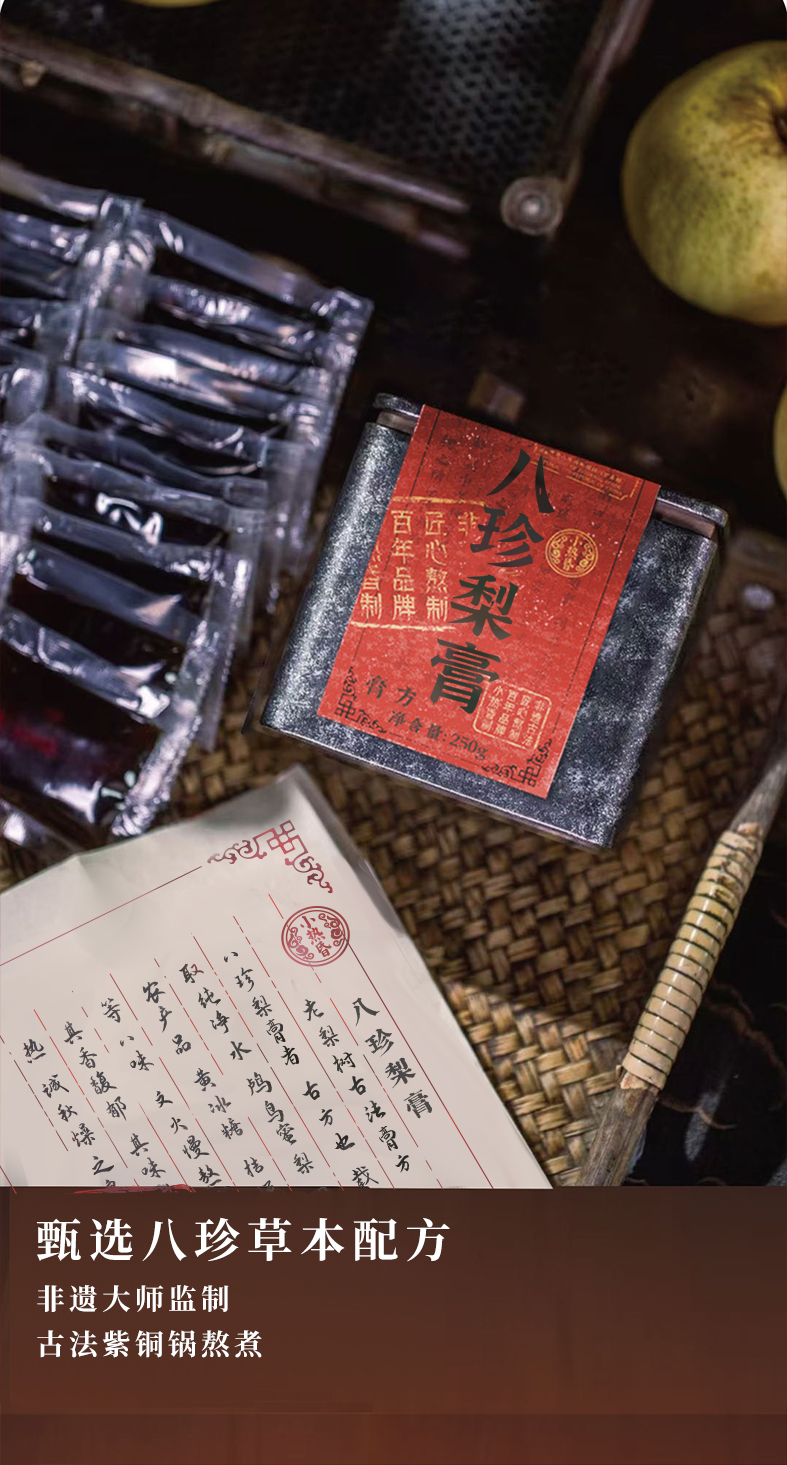 八珍梨膏
小热昏
匠心熬制
百年品牌
膏方
净含量: 250g
非遗古法
匠心熬制
百年品牌
小热昏制
小热昏
八珍梨膏
老梨树古法膏方
古方也
八珍梨膏者
鸬鸟蜜梨
取纯净水
黄冰糖
农产品
文火慢熬
等八味
其味
其香馥郁
热
诚秋燥之
甄选八珍草本配方
非遗大师监制
古法紫铜锅熬煮